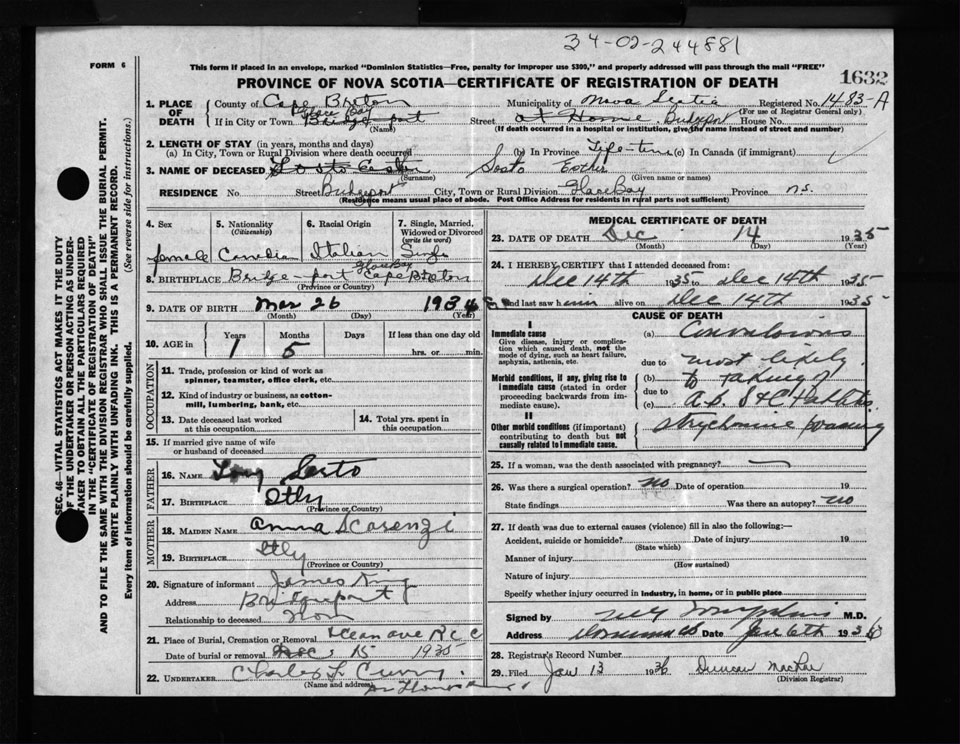 34-02-244881
FORM 6
This form if placed in an envelope, marked "Dominion Statistics—Free, penalty for improper use $300," and properly addressed will pass through the mail "FREE"
PROVINCE OF NOVA SCOTIA—CERTIFICATE OF REGISTRATION OF DEATH
1632
1. PLACE OF DEATH
County of Cape Breton
Municipality of Nova Scotia Registered No. 1483-A
(For use of Registrar General only)
Glace Bay
If in City or Town Bridgeport Street at Home Bridgeport House No.
(Name) (If death occurred in a hospital or institution, give the name instead of street and number)
2. LENGTH OF STAY (in years, months and days)
(a) In City, Town or Rural Division where death occurred (b) In Province Life-time (c) In Canada (if immigrant)
3. NAME OF DECEASED Sosto Esther
(Surname) (Given name or names)
RESIDENCE No. Street Bridgeport City, Town or Rural Division Glace Bay Province N.S.
(Residence means usual place of abode. Post Office Address for residents in rural parts not sufficient)
4. Sex female
5. Nationality (Citizenship) Canadian
6. Racial Origin Italian
7. Single, Married, Widowed or Divorced (write the word) Single
8. BIRTHPLACE Bridge-port Glace Bay Cape Breton
(Province or Country)
9. DATE OF BIRTH Mar 26 1934
(Month) (Day) (Year)
10. AGE in
Years 1
Months 5
If less than one day old
hrs. or min.
OCCUPATION
11. Trade, profession or kind of work as spinner, teamster, office clerk, etc.
12. Kind of industry or business, as cotton-mill, lumbering, bank, etc.
13. Date deceased last worked at this occupation
14. Total yrs. spent in this occupation
15. If married give name of wife or husband of deceased
FATHER
16. NAME Sosto
17. BIRTHPLACE Itly
(Province or Country)
MOTHER
18. MAIDEN NAME Anna
19. BIRTHPLACE Itly
(Province or Country)
20. Signature of informant James King
Address Bridgeport
Relationship to deceased Non
21. Place of Burial, Cremation or Removal Ocean ave R C C
Date of burial or removal Dec 15 1935
22. UNDERTAKER Charles F
(Name and address)
MEDICAL CERTIFICATE OF DEATH
23. DATE OF DEATH Dec 14 1935
(Month) (Day) (Year)
24. I HEREBY CERTIFY that I attended deceased from:
Dec 14th 1935 to Dec 14th 1935
and last saw her alive on Dec 14th 1935
CAUSE OF DEATH
I
Immediate cause
Give disease, injury or complication which caused death, not the mode of dying, such as heart failure, asphyxia, asthenia, etc.
(a) Convulsions
due to most likely
Morbid conditions, if any, giving rise to immediate cause (stated in order proceeding backwards from immediate cause).
(b) to taking of
due to
(c) A.B. S & C Tablets
II
Other morbid conditions (if important) contributing to death but not causally related to immediate cause.
strychnine poisoning
25. If a woman, was the death associated with pregnancy?
26. Was there a surgical operation? no Date of operation 19
State findings Was there an autopsy? no
27. If death was due to external causes (violence) fill in also the following:—
Accident, suicide or homicide? Date of injury 19
(State which)
Manner of injury
(How sustained)
Nature of injury
Specify whether injury occurred in industry, in home, or in public place
Signed by M.D.
Address Date Jan 6th 1936
28. Registrar's Record Number
29. Filed Jan 13 1936 Duncan MacRae
(Division Registrar)
SEC. 46—VITAL STATISTICS ACT MAKES IT THE DUTY
OF THE UNDERTAKER OR PERSON ACTING AS UNDERTAKER TO OBTAIN ALL THE PARTICULARS REQUIRED
IN THE "CERTIFICATE OF REGISTRATION OF DEATH"
AND TO FILE THE SAME WITH THE DIVISION REGISTRAR WHO SHALL ISSUE THE BURIAL PERMIT.
WRITE PLAINLY WITH UNFADING INK. THIS IS A PERMANENT RECORD.
Every item of information should be carefully supplied. (See reverse side for instructions.)